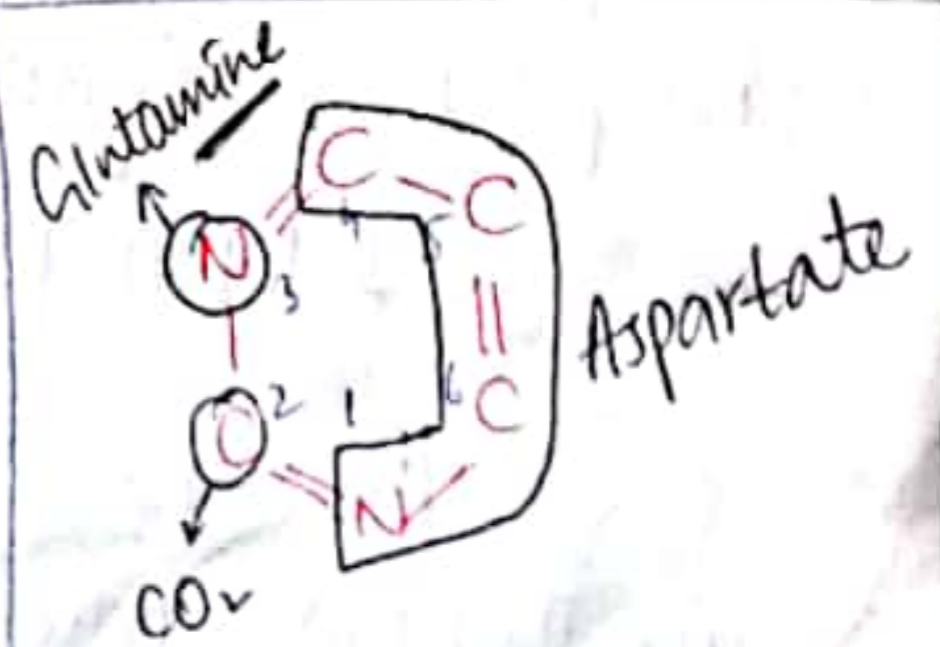 Glutamine
C
4
C
5
N
3
Aspartate
C
2
1
6
C
N
CO₂